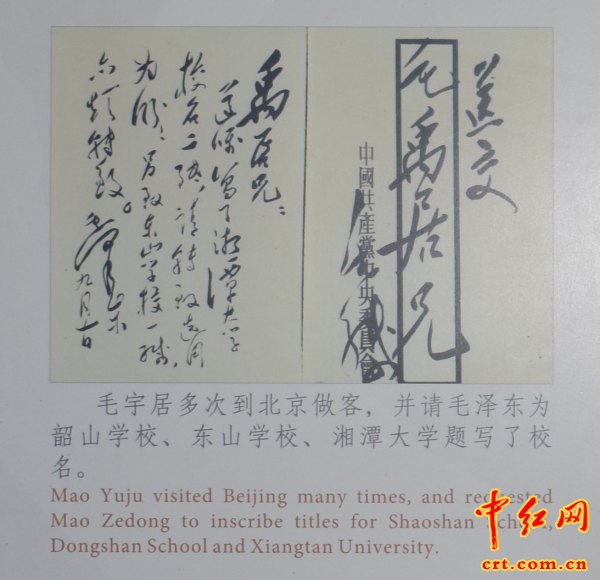 毛禹居兄
中國共產黨中央委員會
禹居兄：
遵嘱写了湘潭大学
校名二纸，请转致选用
为盼；另致东山学校一缄，
亦烦转致。
毛泽东
九月十日
毛宇居多次到北京做客，并请毛泽东为
韶山学校、东山学校、湘潭大学题写了校
名。
Mao Yuju visited Beijing many times, and requested
Mao Zedong to inscribe titles for Shaoshan School,
Dongshan School and Xiangtan University.
中红网
crt.com.cn